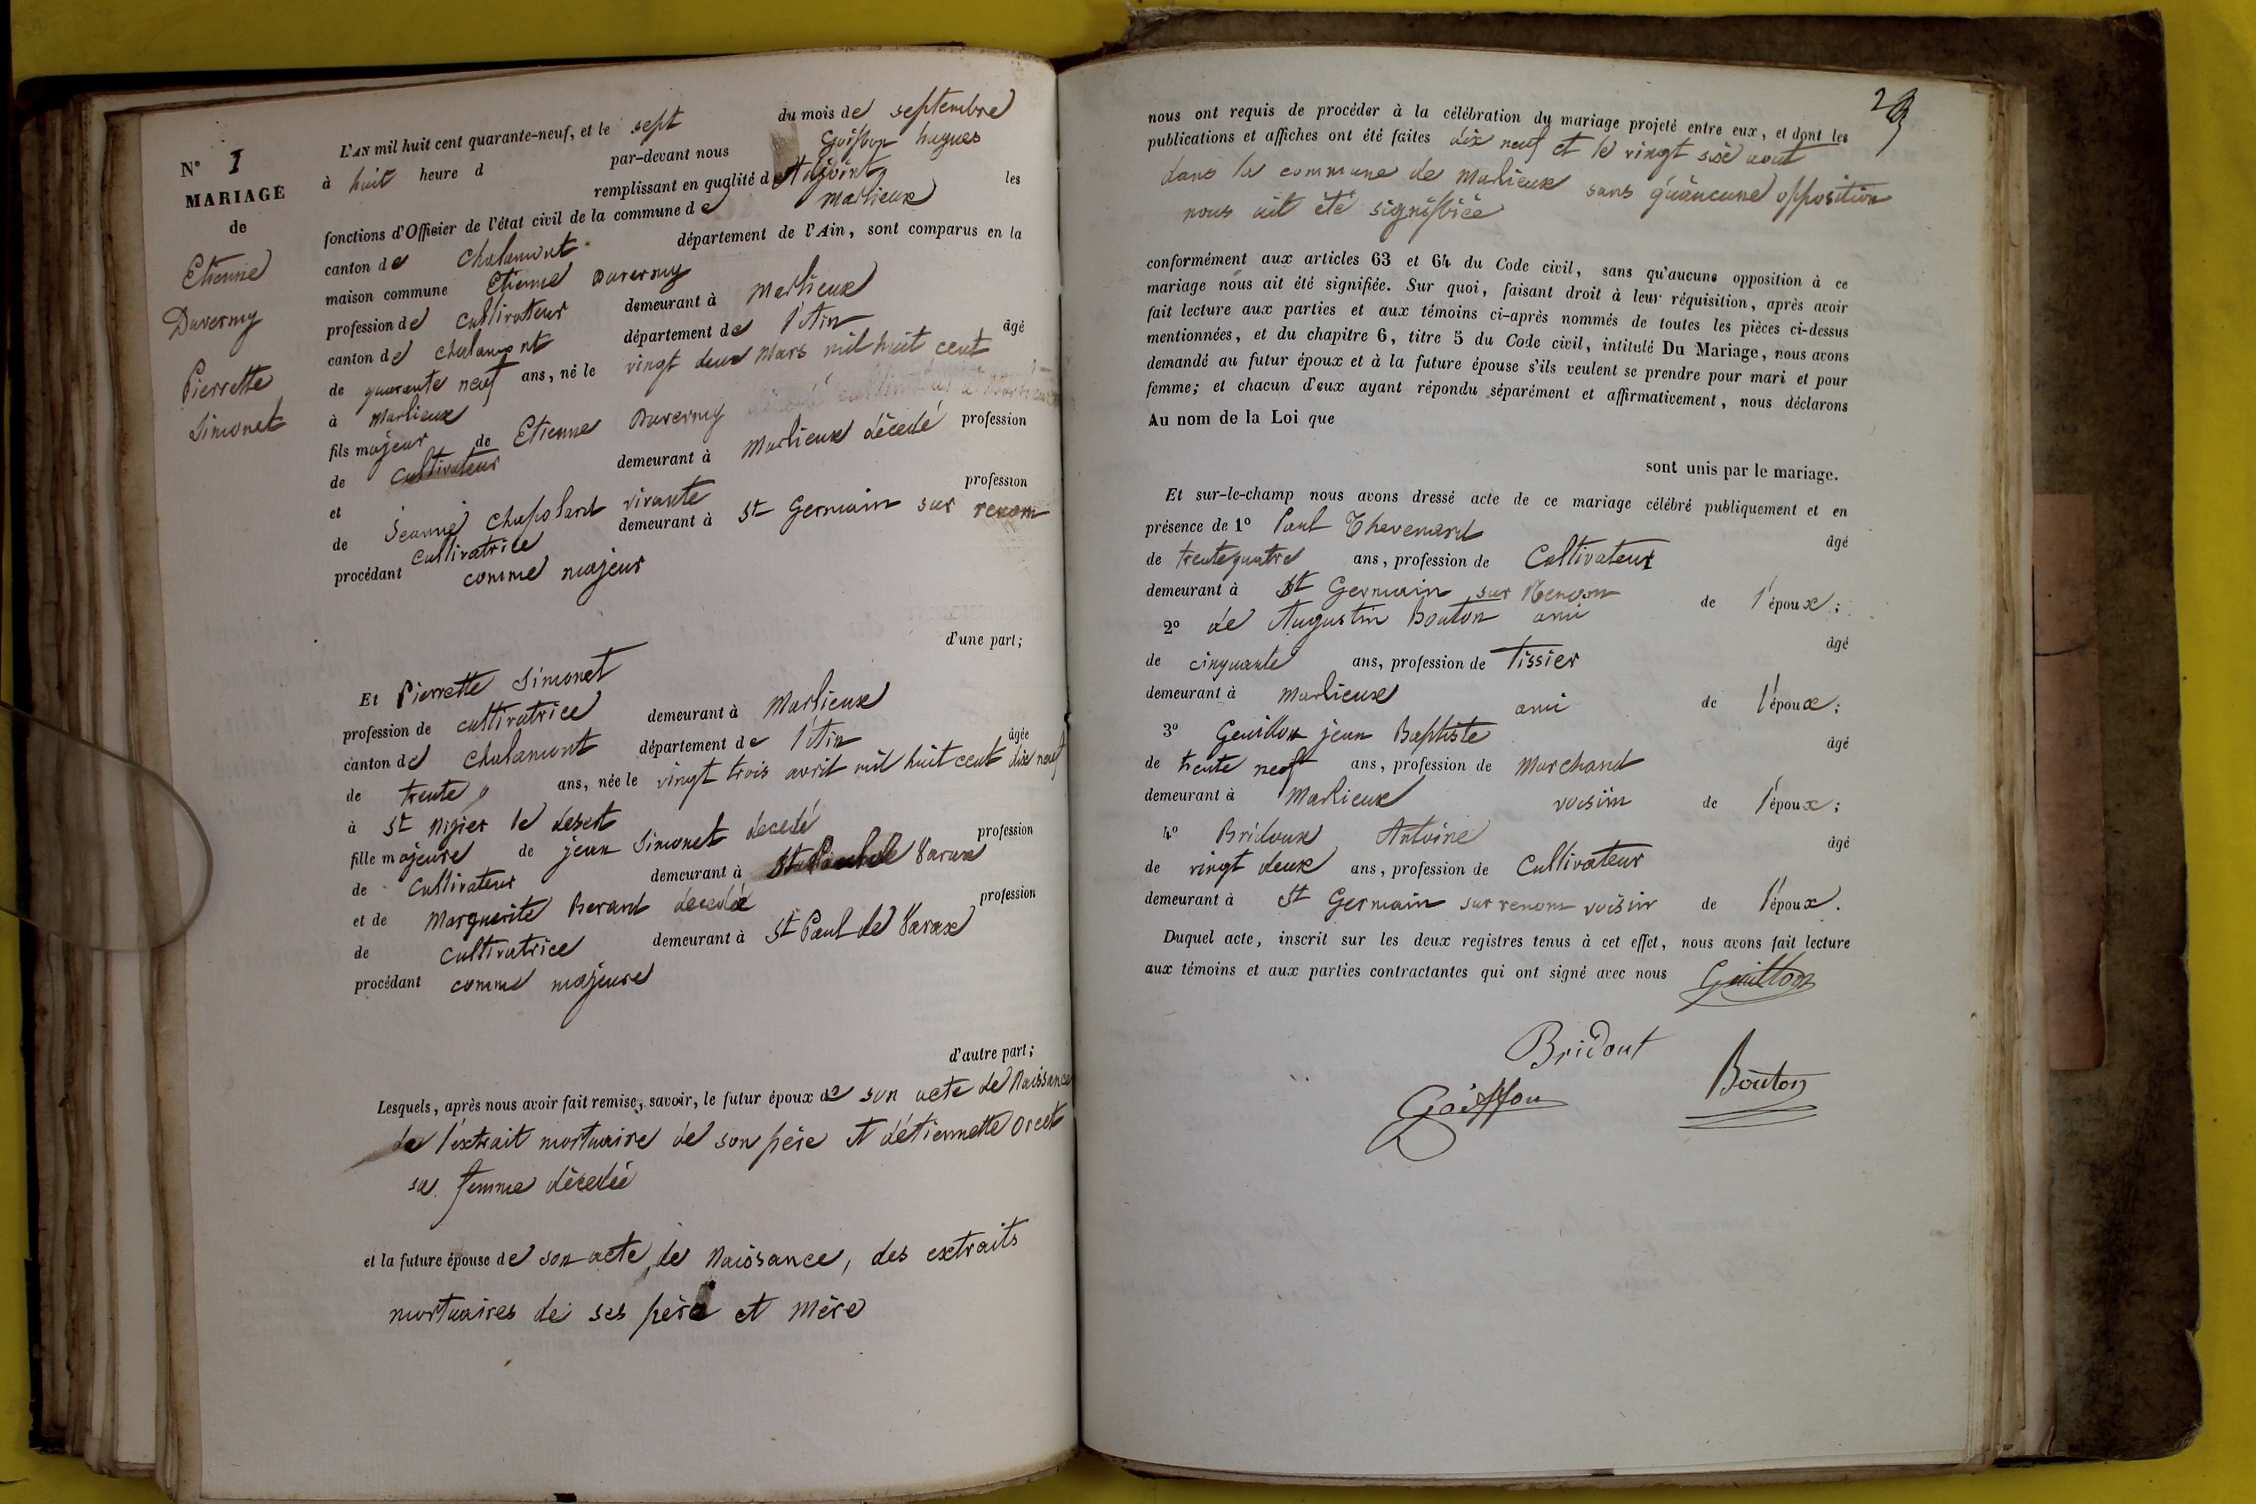 N° 1
MARIAGE
de
Etienne
Duvermy
Pierrette
Simonet
L'AN mil huit cent quarante-neuf, et le sept du mois de septembre
à huit heure d par-devant nous Goiffon hugues
remplissant en qualité d'Adjoint les
fonctions d'Officier de l'état civil de la commune de Marlieux
canton de Chalamont département de l'Ain, sont comparus en la
maison commune Etienne Duvermy
profession de cultivateur demeurant à Marlieux
canton de chalamont département de l'Ain âgé
de quarante neuf ans, né le vingt deux Mars mil huit cent
à Marlieux
fils majeur de Etienne Duvermy profession
de cultivateur demeurant à Marlieux décedé
et Jeanne Chapolard vivante profession
de cultivatrice demeurant à St Germain sur renom
procédant comme majeur
d'une part;
Et Pierrette Simonet
profession de cultivatrice demeurant à Marlieux
canton de chalamont département de l'Ain âgée
de trente ans, née le vingt trois avril mil huit cent dix neuf
à St Nizier le désert
fille majeure de jean Simonet decedé profession
de cultivateur demeurant à St Paul de Varax
et de Marguerite Berard decedée profession
de cultivatrice demeurant à St Paul de Varax
procédant comme majeure
d'autre part;
Lesquels, après nous avoir fait remise, savoir, le futur époux de son acte de Naissance
de l'extrait mortuaire de son père et d'étiennette Orcet
sa femme décedée
et la future épouse de son acte de Naissance, des extraits
mortuaires de ses père et Mère
29
nous ont requis de procéder à la célébration du mariage projeté entre eux, et dont les
publications et affiches ont été faites dix neuf et le vingt six aout
dans la commune de Marlieux sans qu'aucune opposition
nous ait été signifiée
conformément aux articles 63 et 64 du Code civil, sans qu'aucune opposition à ce
mariage nous ait été signifiée. Sur quoi, faisant droit à leur réquisition, après avoir
fait lecture aux parties et aux témoins ci-après nommés de toutes les pièces ci-dessus
mentionnées, et du chapitre 6, titre 5 du Code civil, intitulé Du Mariage, nous avons
demandé au futur époux et à la future épouse s'ils veulent se prendre pour mari et pour
femme; et chacun d'eux ayant répondu séparément et affirmativement, nous déclarons
Au nom de la Loi que
sont unis par le mariage.
Et sur-le-champ nous avons dressé acte de ce mariage célébré publiquement et en
présence de 1° Paul Thevenard âgé
de trente quatre ans, profession de Cultivateur
demeurant à St Germain sur Renom de l'époux;
2° de Augustin Bouton ami âgé
de cinquante ans, profession de Tissier
demeurant à Marlieux ami de l'époux;
3° Geuillon jean Baptiste âgé
de trente neuf ans, profession de Marchand
demeurant à Marlieux voisin de l'époux;
4° Bridoux Antoine âgé
de vingt deux ans, profession de Cultivateur
demeurant à St Germain sur renom voisin de l'époux.
Duquel acte, inscrit sur les deux registres tenus à cet effet, nous avons fait lecture
aux témoins et aux parties contractantes qui ont signé avec nous Guillon
Bridout
Goiffon Bouton